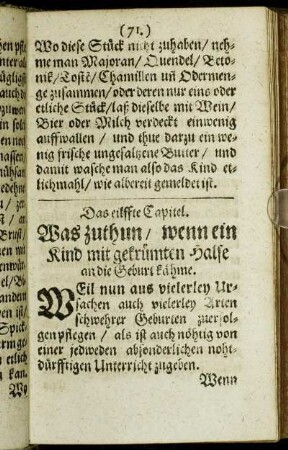 (71.)
Wo diese Stück nicht zuhaben/ neh-
me man Majoran/ Quendel/ Beto-
nik/ Costē/ Chamillen uñ Odermen-
ge zusammen/ oder deren nur eins oder
etliche Stück/ laß dieselbe mit Wein/
Bier oder Milch verdeckt einwenig
auffwallen / und thue darzu ein we-
nig frische ungesaltzene Butter / und
damit wasche man also das Kind et-
lichmahl/ wie albereit gemeldet ist.
Das eilffte Capitel.
Was zuthun / wenn ein
Kind mit gekrümten Halse
an die Geburt kähme.
WEil nun aus vielerley Ur-
sachen auch vielerley Arten
schwehrer Geburten zuerfol-
gen pflegen / als ist auch nöhtig von
einer jedweden absonderlichen noht-
dürfftigen Unterricht zugeben.
Wenn